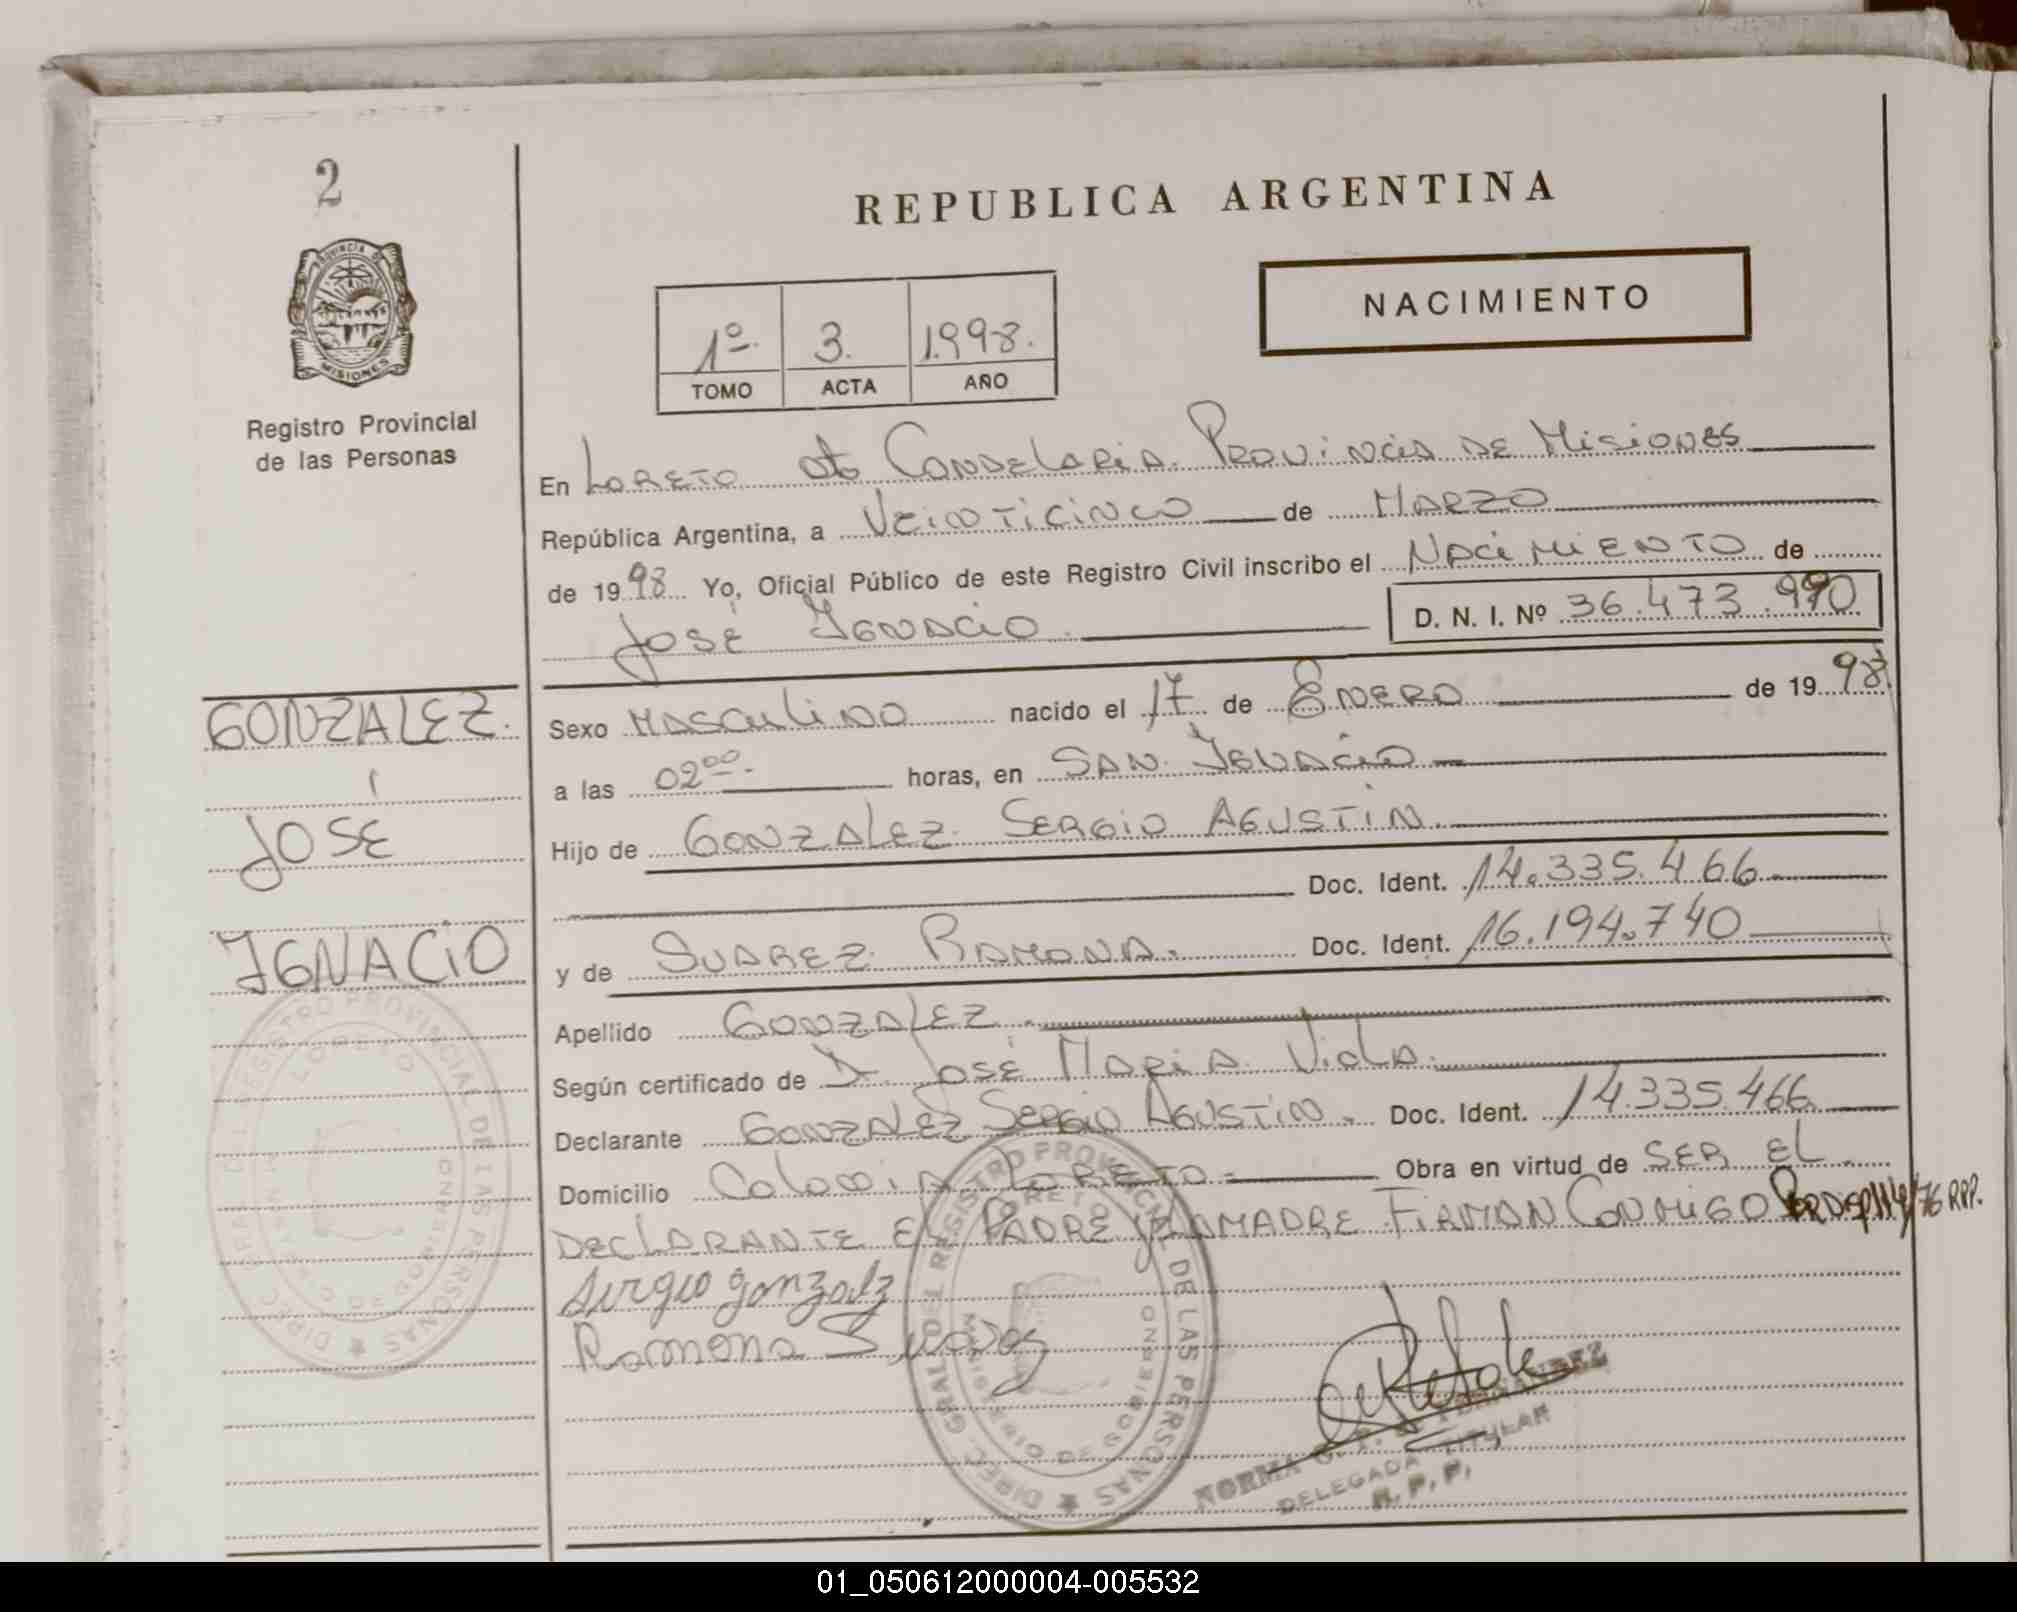 2
PROVINCIA DE
MISIONES
Registro Provincial
de las Personas
REPUBLICA ARGENTINA
1º. 3. 1.998.
TOMO ACTA AÑO
NACIMIENTO
En LORETO Dto CANDELARIA. PROVINCIA DE MISIONES
República Argentina, a VEINTICINCO de MARZO
de 1998 Yo, Oficial Público de este Registro Civil inscribo el NACIMIENTO de
JOSÉ IGNACIO. D. N. I. Nº 36.473.990
GONZALEZ.
JOSÉ
IGNACIO
Sexo MASCULINO nacido el 17 de ENERO de 1998
a las 02⁰⁰. horas, en SAN IGNACIO
Hijo de GONZALEZ. SERGIO AGUSTÍN.
Doc. Ident. 14.335.466.
y de SUAREZ. RAMONA. Doc. Ident. 16.194.740
Apellido GONZALEZ.
Según certificado de Dr. JOSÉ MARIA VIOLA.
Declarante GONZALEZ SERGIO AGUSTÍN. Doc. Ident. 14.335.466.
Domicilio COLONIA LORETO. Obra en virtud de SER EL
DECLARANTE EL PADRE Y LA MADRE FIRMAN CONMIGO /76 RPP.
Sergio gonzalz
Ramona Suarez
DIREC. GRAL. DEL REGISTRO PROVINCIAL DE LAS PERSONAS
LORETO
GOBIERNO
DIREC. GRAL DEL REGISTRO PROVINCIAL DE LAS PERSONAS
LORETO
GOBIERNO
NORMA
DELEGADA TITULAR
R. P. P.
01_050612000004-005532